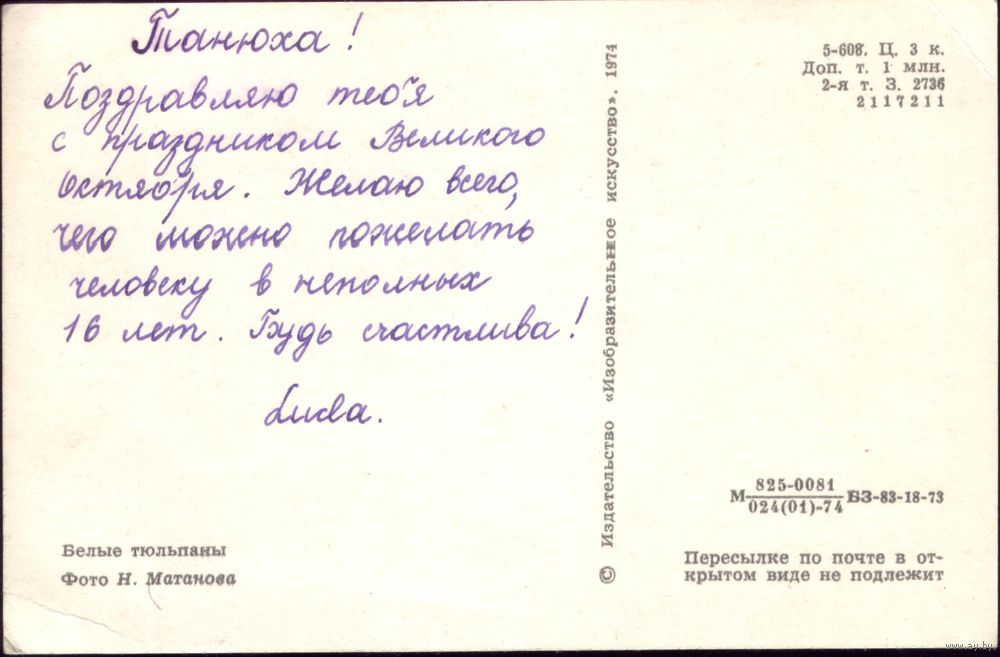 Танюха!
Поздравляю тебя
с праздником Великого
Октября. Желаю всего,
чего можно пожелать
человеку в неполных
16 лет. Будь счастлива!
Белые тюльпаны
Фото Н. Матанова
© Издательство «Изобразительное искусство». 1974
5-608. Ц. 3 к.
Доп. т. 1 млн.
2-я т. З. 2736
2117211
М 825-0081
024(01)-74 БЗ-83-18-73
Пересылке по почте в от-
крытом виде не подлежит
www.ay.by